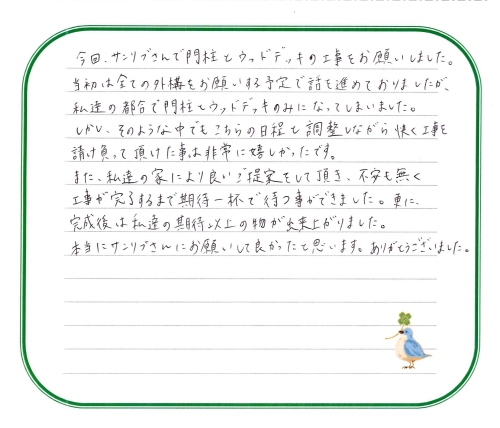 今回、サンリブさんで門柱とウッドデッキの工事をお願いしました。
当初は全ての外構をお願いする予定で話を進めておりましたが、
私達の都合で門柱とウッドデッキのみになってしまいました。
しかし、そのような中でもこちらの日程と調整しながら快く工事を
請け負って頂けた事は非常に嬉しかったです。
また、私達の家により良いご提案をして頂き、不安も無く
工事が完了するまで期待一杯で待つ事ができました。更に、
完成後は私達の期待以上の物が出来上がりました。
本当にサンリブさんにお願いして良かったと思います。ありがとうございました。